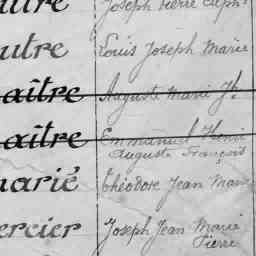 aitre Joseph Pierre
autre Louis Joseph Marie
aître Auguste Marie Jh.
aître Emmanuel Henri
Auguste François
marié Théodore Jean Marie
ercier Joseph Jean Marie
Pierre